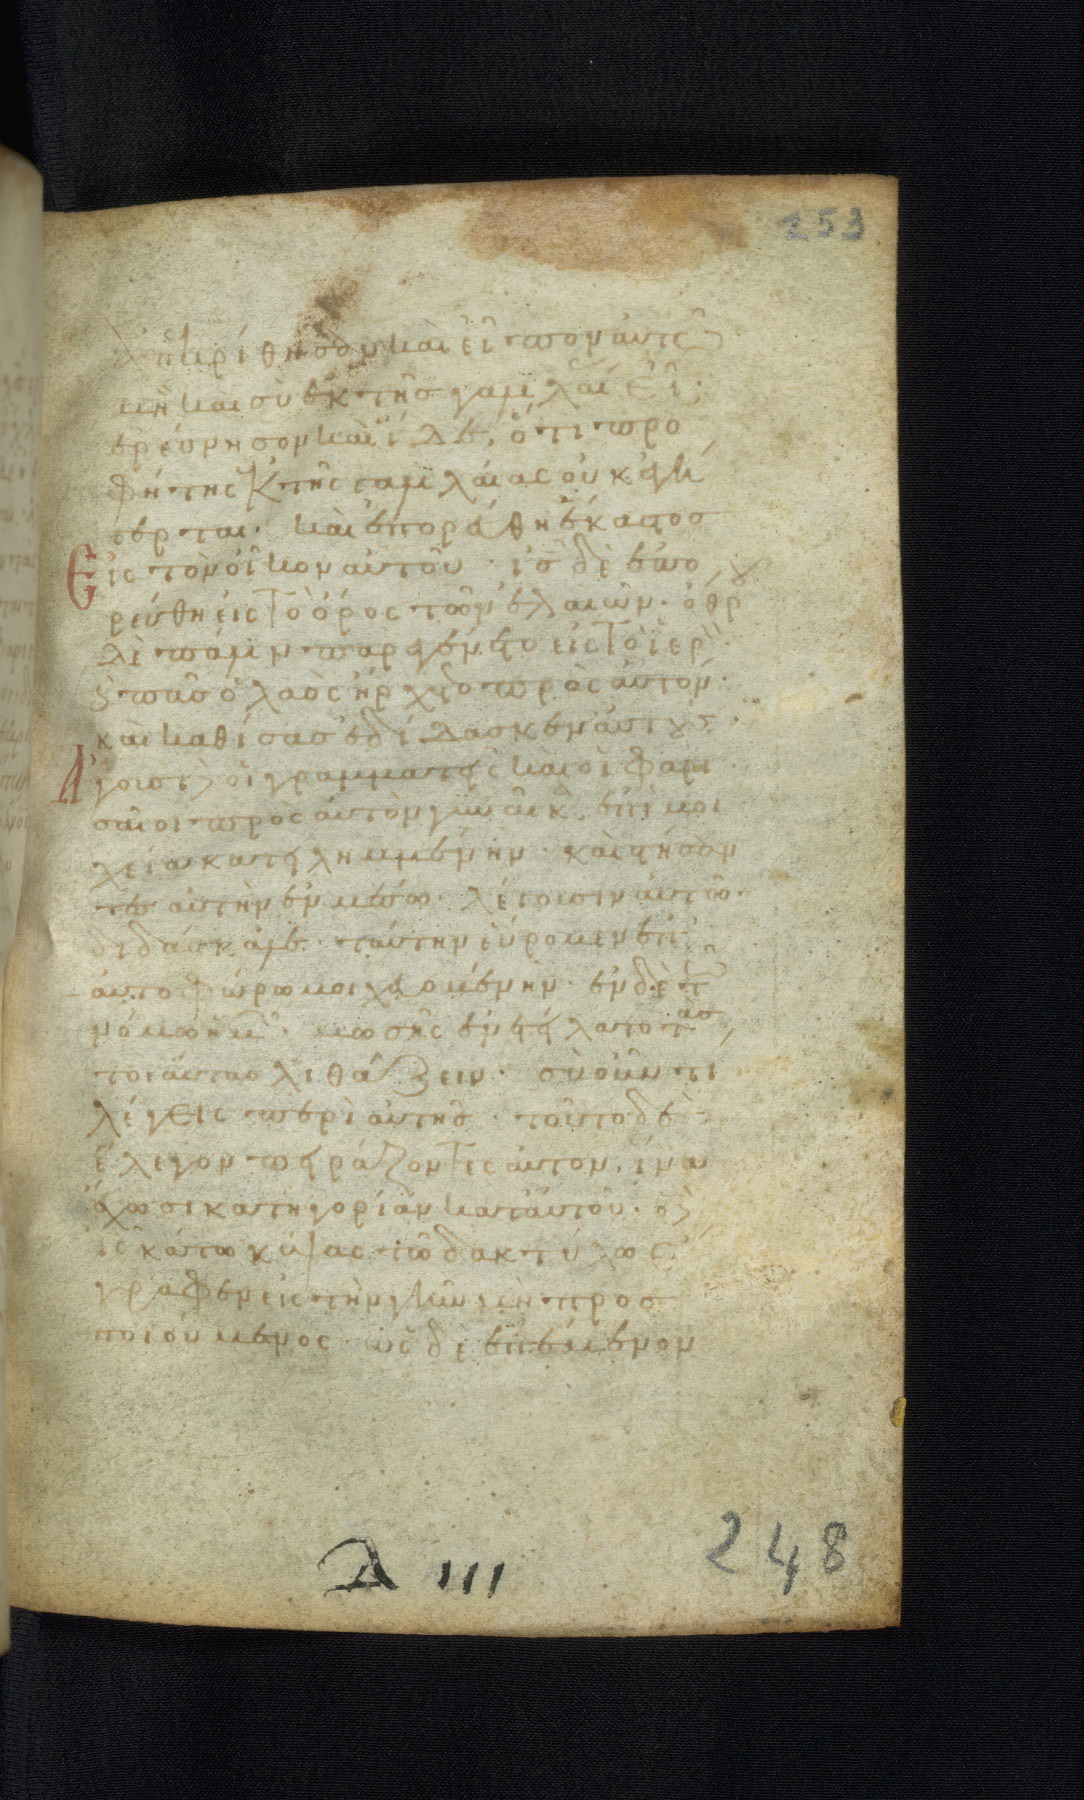 253
ἀπεκρίθησαν καὶ εἶπον αὐτῷ
μὴ καὶ σὺ ἐκ τῆς γαλιλαί εἶ·
ἐρεύνησον καὶ ἴδε, ὅτι προ
φήτης ἐκ τῆς γαλιλαίας οὐκ ἐγή
γερται· καὶ ἐπορεύθη ἕκαστος
Εἰς τὸν οἶκον αὐτοῦ· ις δὲ ἐπο
ρεύθη εἰς τὸ ὄρος τῶν ἐλαιῶν· ὄρθρου
δὲ πάλιν παρεγένετο εἰς τὸ ἱερὸν·
καὶ πᾶς ὁ λαὸς ἤρχετο πρὸς αὐτόν·
καὶ καθίσας ἐδίδασκεν αὐτούς·
Ἄγουσι δὲ οἱ γραμματεῖς καὶ οἱ φαρι
σαῖοι πρὸς αὐτὸν γυναῖκα ἐπὶ μοι
χεία κατειλημμένην· καὶ στήσαν
τες αὐτὴν ἐν μέσω· λέγουσιν αὐτῶ·
διδάσκαλε· ταύτην εὕρομεν ἐπ
αὐτοφώρω μοιχευομένην· ἐν δὲ τῶ
νόμω ἡμῶν· μωσῆς ἐνετείλατο τὰς
τοιαύτας λιθάζειν· σὺ οὖν τί
λέγεις περὶ αὐτῆς· τοῦτο δὲ
ἔλεγον πειράζοντες αὐτόν, ἵνα
ἔχωσι κατηγορίαν κατ αὐτοῦ· ὁ δὲ
ις κάτω κύψας τῶ δακτύλω ἔ
γραφεν εἰς τὴν γῆν μὴ προσ
ποιούμενος· ὡς δὲ ἐπέμενον
A III
248